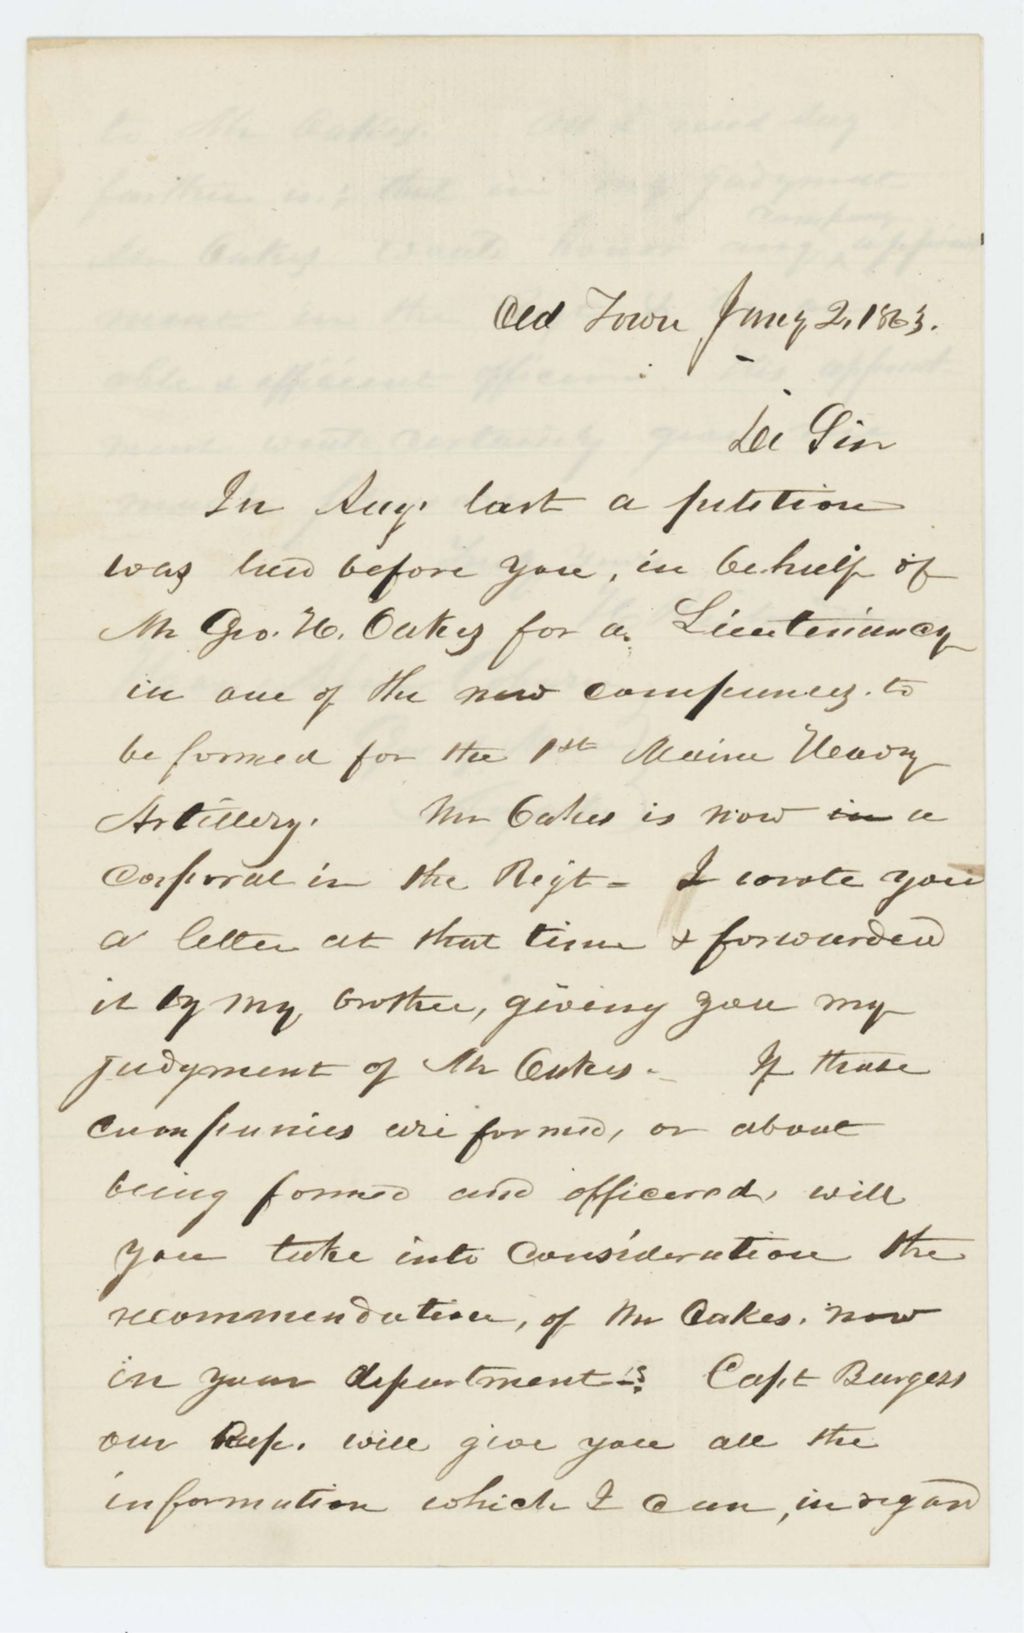 Old Town Jany 2, 1863.
Dr Sir
In Aug. last a petition
was laid before you, in behalf of
Mr Geo. H. Oakes for a Lieutenancy
in one of the new companies to
be formed for the 1st Maine Heavy
Artillery. Mr Oakes is now in a
Corporal in the Regt - I wrote you
a letter at that time & forwarded
it by my brother, giving you my
judgment of Mr Oakes - If those
companies are formed, or about
being formed and officered, will
you take into consideration the
recommendation, of Mr Oakes. now
in your department? Capt Burgess
our Rep. will give you all the
information which I can, in regard